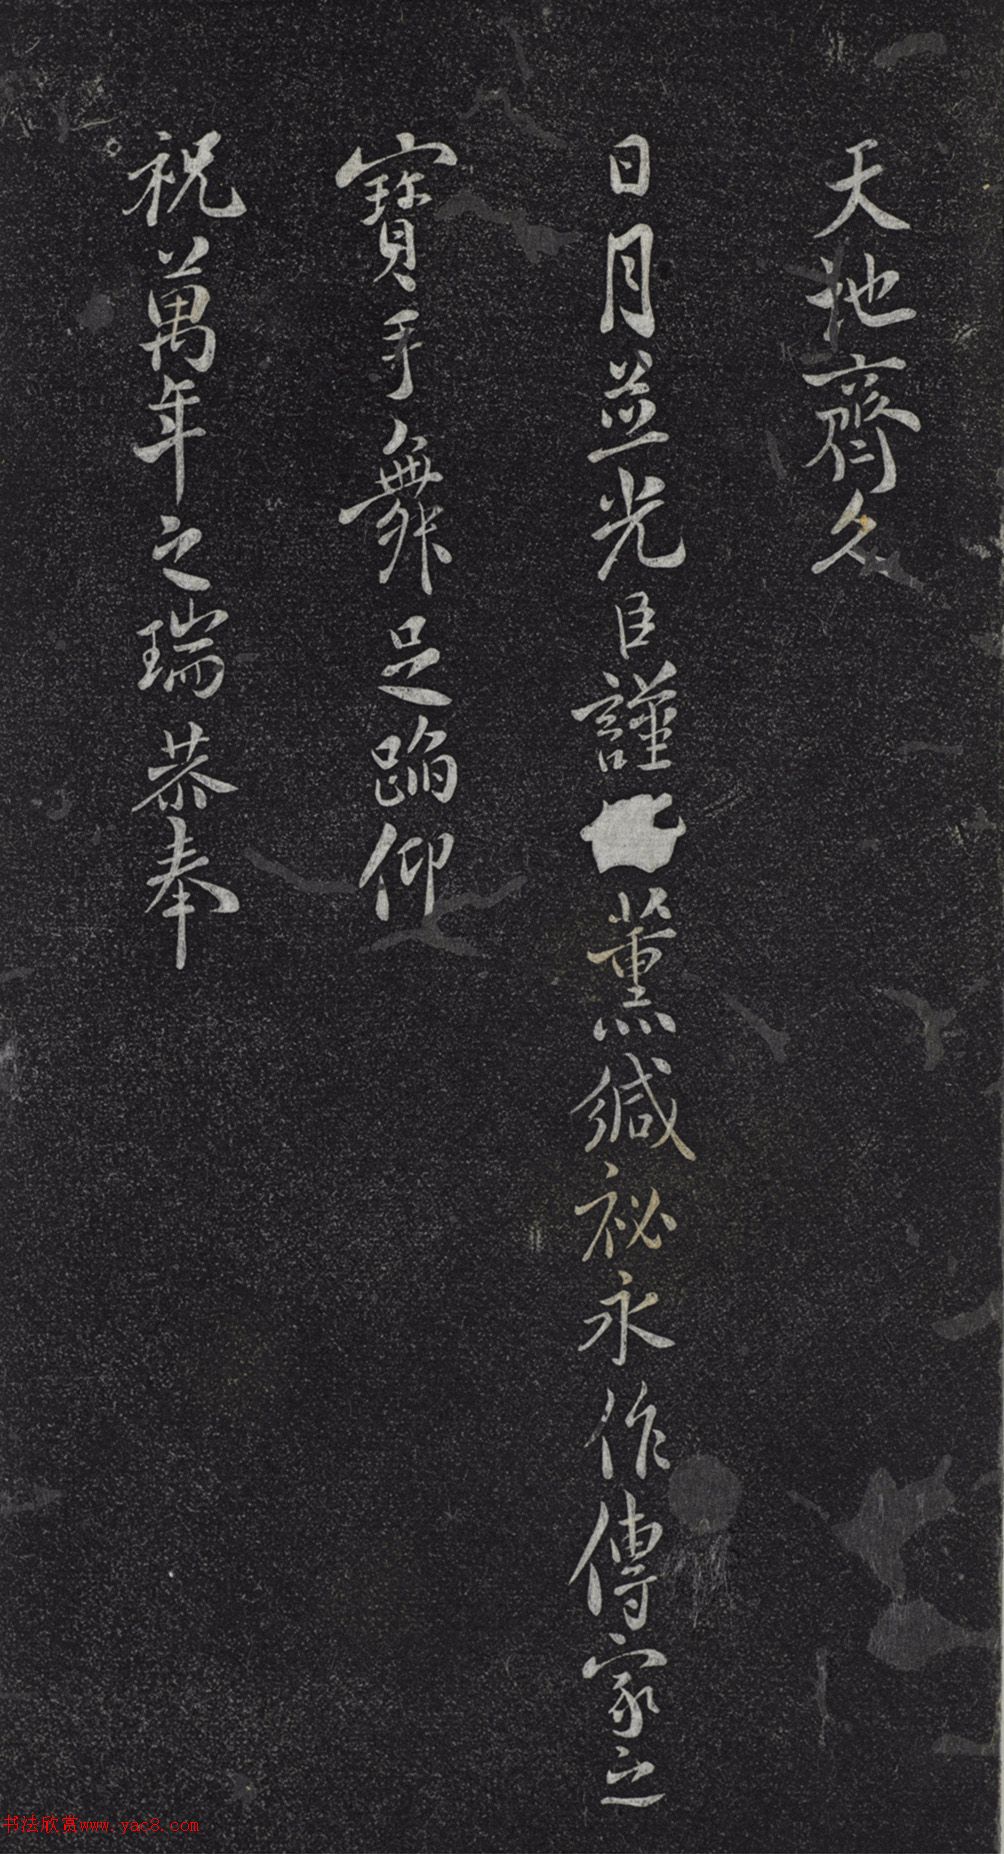 天地齊久
日月並光臣謹薰緘祕永作傳家之
寶手舞足蹈仰
祝萬年之瑞恭奉
书法欣赏www.yac8.com